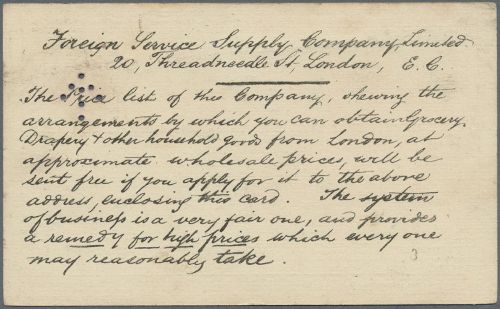 Foreign Service Supply Company, Limited.
20, Threadneedle St, London, E. C.
The Price list of this Company, shewing the
arrangements by which you can obtain Grocery,
Drapery & other household goods from London, at
approximate wholesale prices, will be
sent free if you apply for it to the above
address, enclosing this card. The system
of business is a very fair one, and provides
a remedy for high prices which every one
may reasonably take.
3